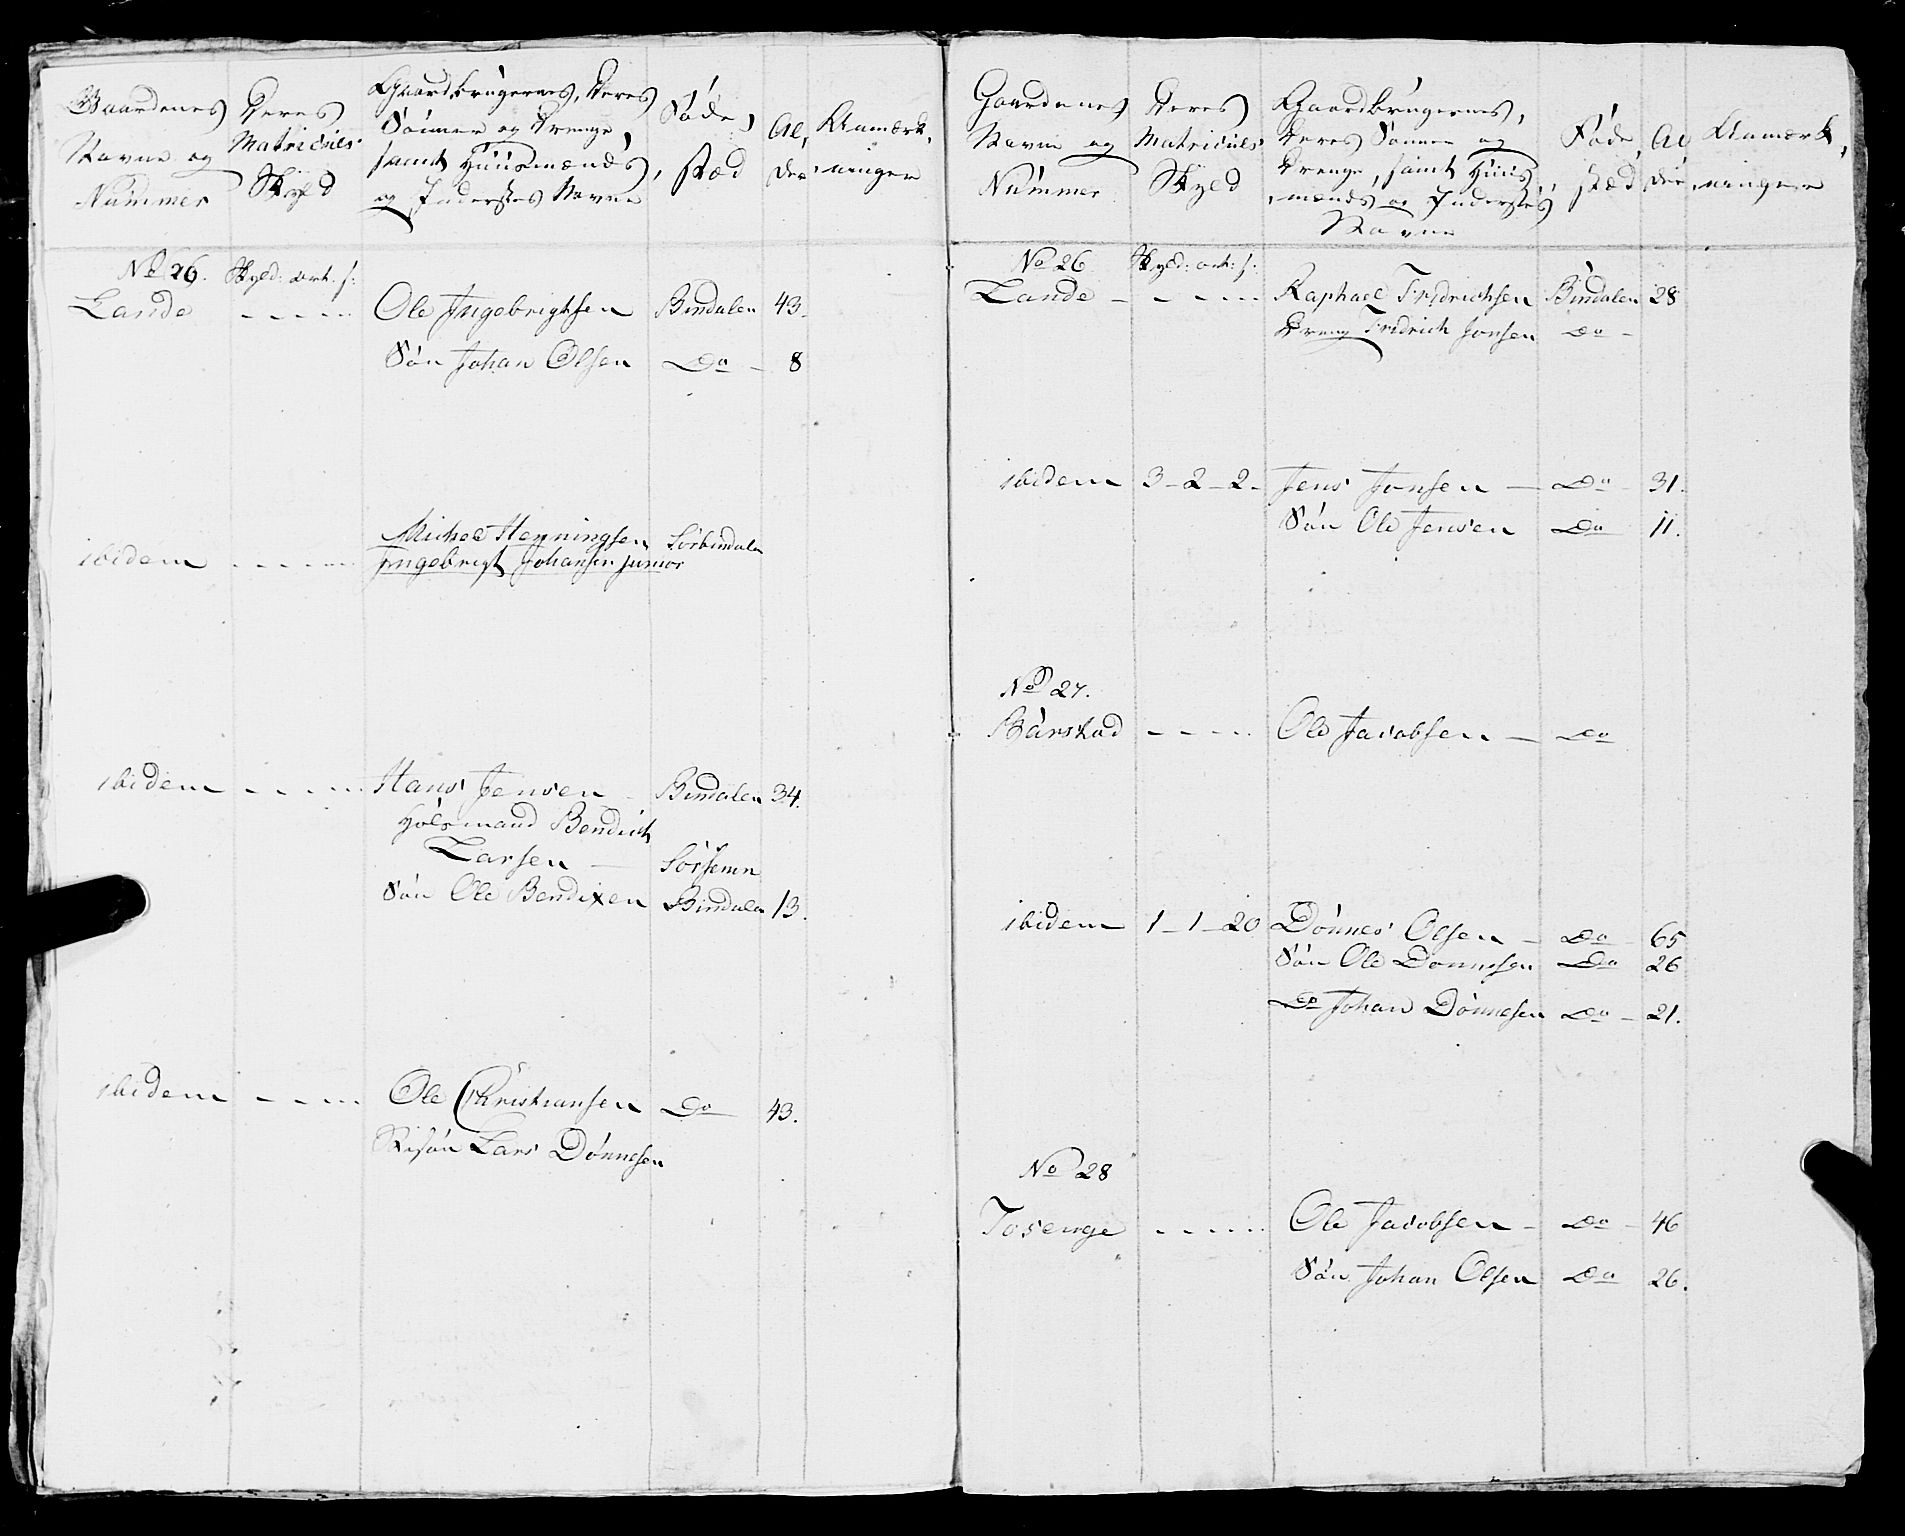 Gaardenes
Navne og
Nummer
Deres
Matriculs
Skyld
Gaardbrugernes, Deres
Sønner og Drenge,
samt Huusmænds,
og Inderstes Navne
Føde,
stæd
Al,
der
Anmærk,
ninger
No 26. Skyld: ort: s:
Lande - - - - - Ole Ingebrigtsen Bindalen 43.
Søn Johan Olsen Do - 8
Michel Henningsen Sørbindalen
ibidem - - - - - Ingebrigt Johansen junior
ibidem - - - - - Hans Jensen - Bindalen 34.
Hølsmand Bendich
Larsen — Sørsemn
Søn Ole Bendixen Bindalen 13.
ibidem - - - - Ole Christiansen Do 43.
Stifsøn Lars Dønnesen
Gaardenes
Navne og
Nummer
Deres
Matriculs
Skyld
Gaardbrugernes,
Deres Sønner og
Drenge, samt Huus,
mænds og Inderstes
Navne
Føde,
stæd
Al
der
Anmærk,
ninger
No 26 Skyld: ort: s:
Lande - - - - - Raphael Fridrichsen Bindalen 28
Dreng Fridrich Jonsen Do -
ibidem 3 - 2 - 2 - Jens Jonsen — Do - 31.
Søn Ole Jensen Do 11.
No 27.
Bårstad - - - - Ole Jacobsen — Do
ibidem 1 - 1 - 20 Dønnes Olsen - Do - 65
Søn Ole Dønnesen Do 26
Do Johan Dønnesen Do - 21.
No 28
Tosenge - - - - - Ole Jacobsen - Do - 46
Søn Johan Olsen Do 26.